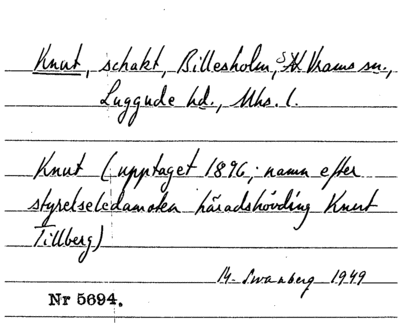 Knut, schakt, Billesholm, N. Vrams sn.,
Luggude hd., Mhs. l.
Knut (upptaget 1896; namn efter
styrelseledamoten häradshövding Knut
Tillberg)
M. Swanberg 1949
Nr 5694.